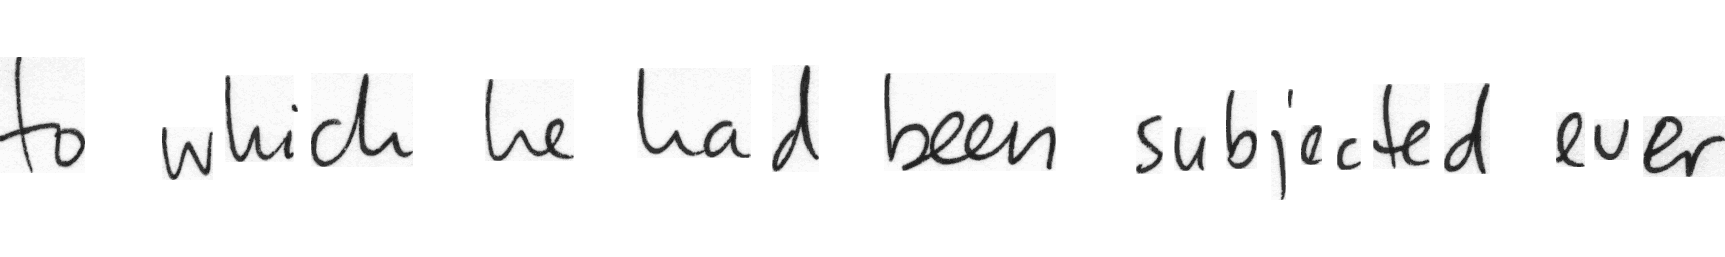 to which he had been subjected ever